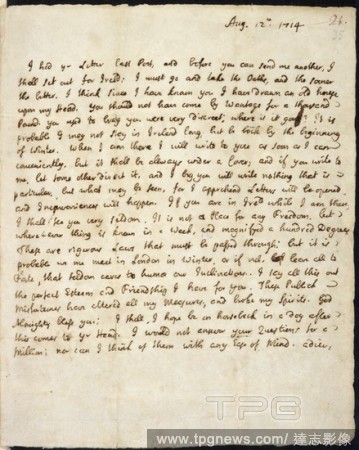 Aug. 12th. 1714
I had yr Letter last Post, and before you can send me another, I
shall set out for Ireld: I must go and take the Oaths, and the sooner
the better. I think since I have known you I have drawn an old house
upon my Head. You should not have come by Wantage for a thousand
Pound. You used to brag you were very discreet; where is it gone? It is
probable I may not stay in Ireland long, but be back by the beginning
of Winter. When I am there I will write to you as soon as I can
conveniently, but it shall be allways under a Cover; and if you write to
me, let some other direct it, and I beg you will write nothing that is
particular, but what may be seen, for I apprehend Letters will be opened
and Inconveniences will happen. If you are in Ireld while I am there
I shall see you very seldom. It is not a Place for any Freedom, but
where every thing is known in a Week, and magnifyed a hundred Degrees
These are rigorous Laws that must be passed through: but it is
probable we may meet in London in Winter, or if not, leave all to
Fate, that seldom cares to humor our Inclinations. I say all this out
of the perfect Esteem and Friendship I have for you. These Publick
Misfortunes have altered all my Measures, and broke my Spirits. God
Almighty bless you; I shall, I hope be on horseback in a day after
this comes to yr Hand. I would not answer your Questions for a
Million; nor can I think of them with any Ease of Mind. adieu.
TPG
www.tpgnews.com / 達志影像